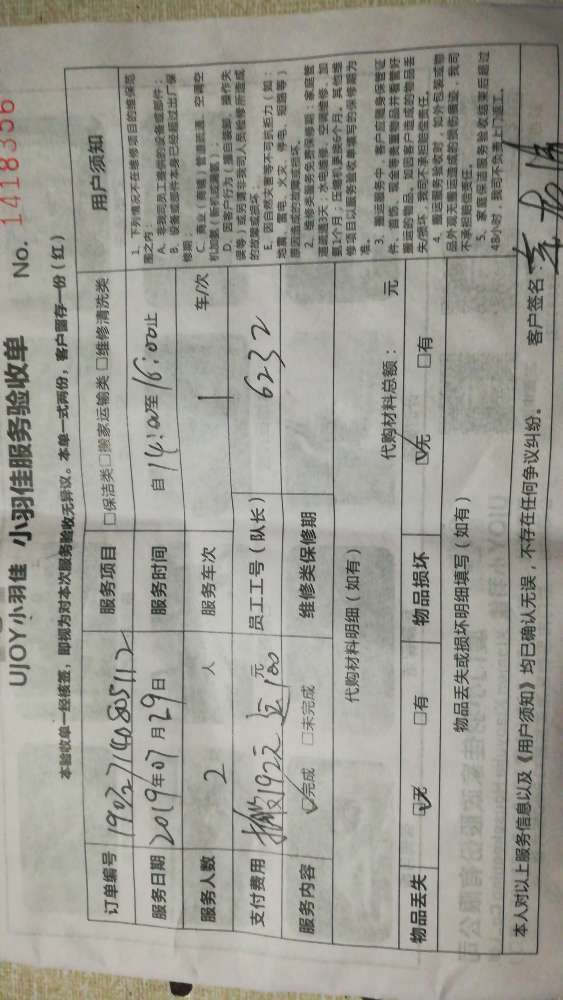 UJOY小羽佳 小羽佳服务验收单 No. 1418356
本验收单一经核签，即视为对本次服务验收无异议。本单一式两份，客户留存一份（红）
订单编号 190327140805112 服务项目 □保洁类□搬家运输类 □维修清洗类
服务日期 2019年07月29日 服务时间 自14:00至16:00止
服务人数 2 人 服务车次 1 车/次
支付费用 搬 192元 100元 员工工号（队长） 6232
服务内容 ☑完成 □未完成 维修类保修期
代购材料明细（如有） 代购材料总额： 元
物品丢失 ☑无 □有 物品损坏 ☑无 □有
物品丢失或损坏明细填写（如有）
用户须知
1、下列情况不在维修项目的维保范
围之内：
A、非我司员工提供的设备或部件；
B、设备或部件本身已经超过出厂保
修期；
C、商业（商铺）管道疏通、空调空
机加氨（新机或漏氨）；
D、因客户行为（擅自装卸、操作失
误等）或另请非我司人员维修所造成
的故障或损坏；
E、因自然灾害等不可抗拒力（如：
地震、雷电、火灾、停电、短路等）
原因造成的故障或损坏。
2、维修类服务免费保修期：家庭管
道疏通当天；水电维修、空调维修、加
氨1个月，压缩机更换6个月。其他维
修项目以服务验收单填写的保修期为
准。
3、搬运服务中，客户应随身保管证
件、首饰、现金等贵重物品并看管好
搬运的物品。如因客户造成的物品丢
失/损坏，我司不承担赔偿责任。
4、搬运服务验收时，如外包装或物
品外观无搬运造成的损伤痕迹，我司
不承担赔偿责任。
5、家庭保洁服务验收结束后超过
48小时，我司不负责上门返工。
本人对以上服务信息以及《用户须知》均已确认无误，不存在任何争议纠纷。 客户签名：